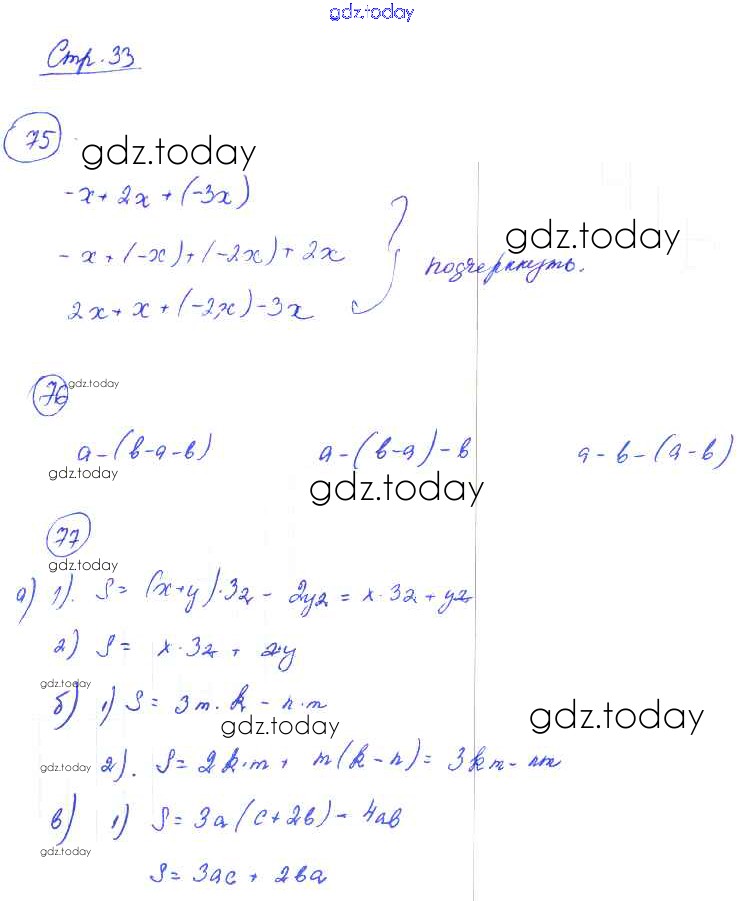 gdz.today
Стр. 33
75
gdz.today
-x + 2x + (-3x)
gdz.today
- x + (-x) + (-2x) + 2x
подчеркнуть.
2x + x + (-2x) - 3x
76 gdz.today
a - (b - a - b) a - (b - a) - b a - b - (a - b)
gdz.today gdz.today
77
gdz.today
а) 1). S = (x + y)·3z - 2yz = x·3z + yz
2) S = x·3z + zy
gdz.today
б) 1) S = 3m·k - n·m
gdz.today gdz.today
gdz.today 2). S = 2k·m + m(k - n) = 3km - nm
в) 1) S = 3a(c + 2b) - 4ab
gdz.today
S = 3ac + 2ba